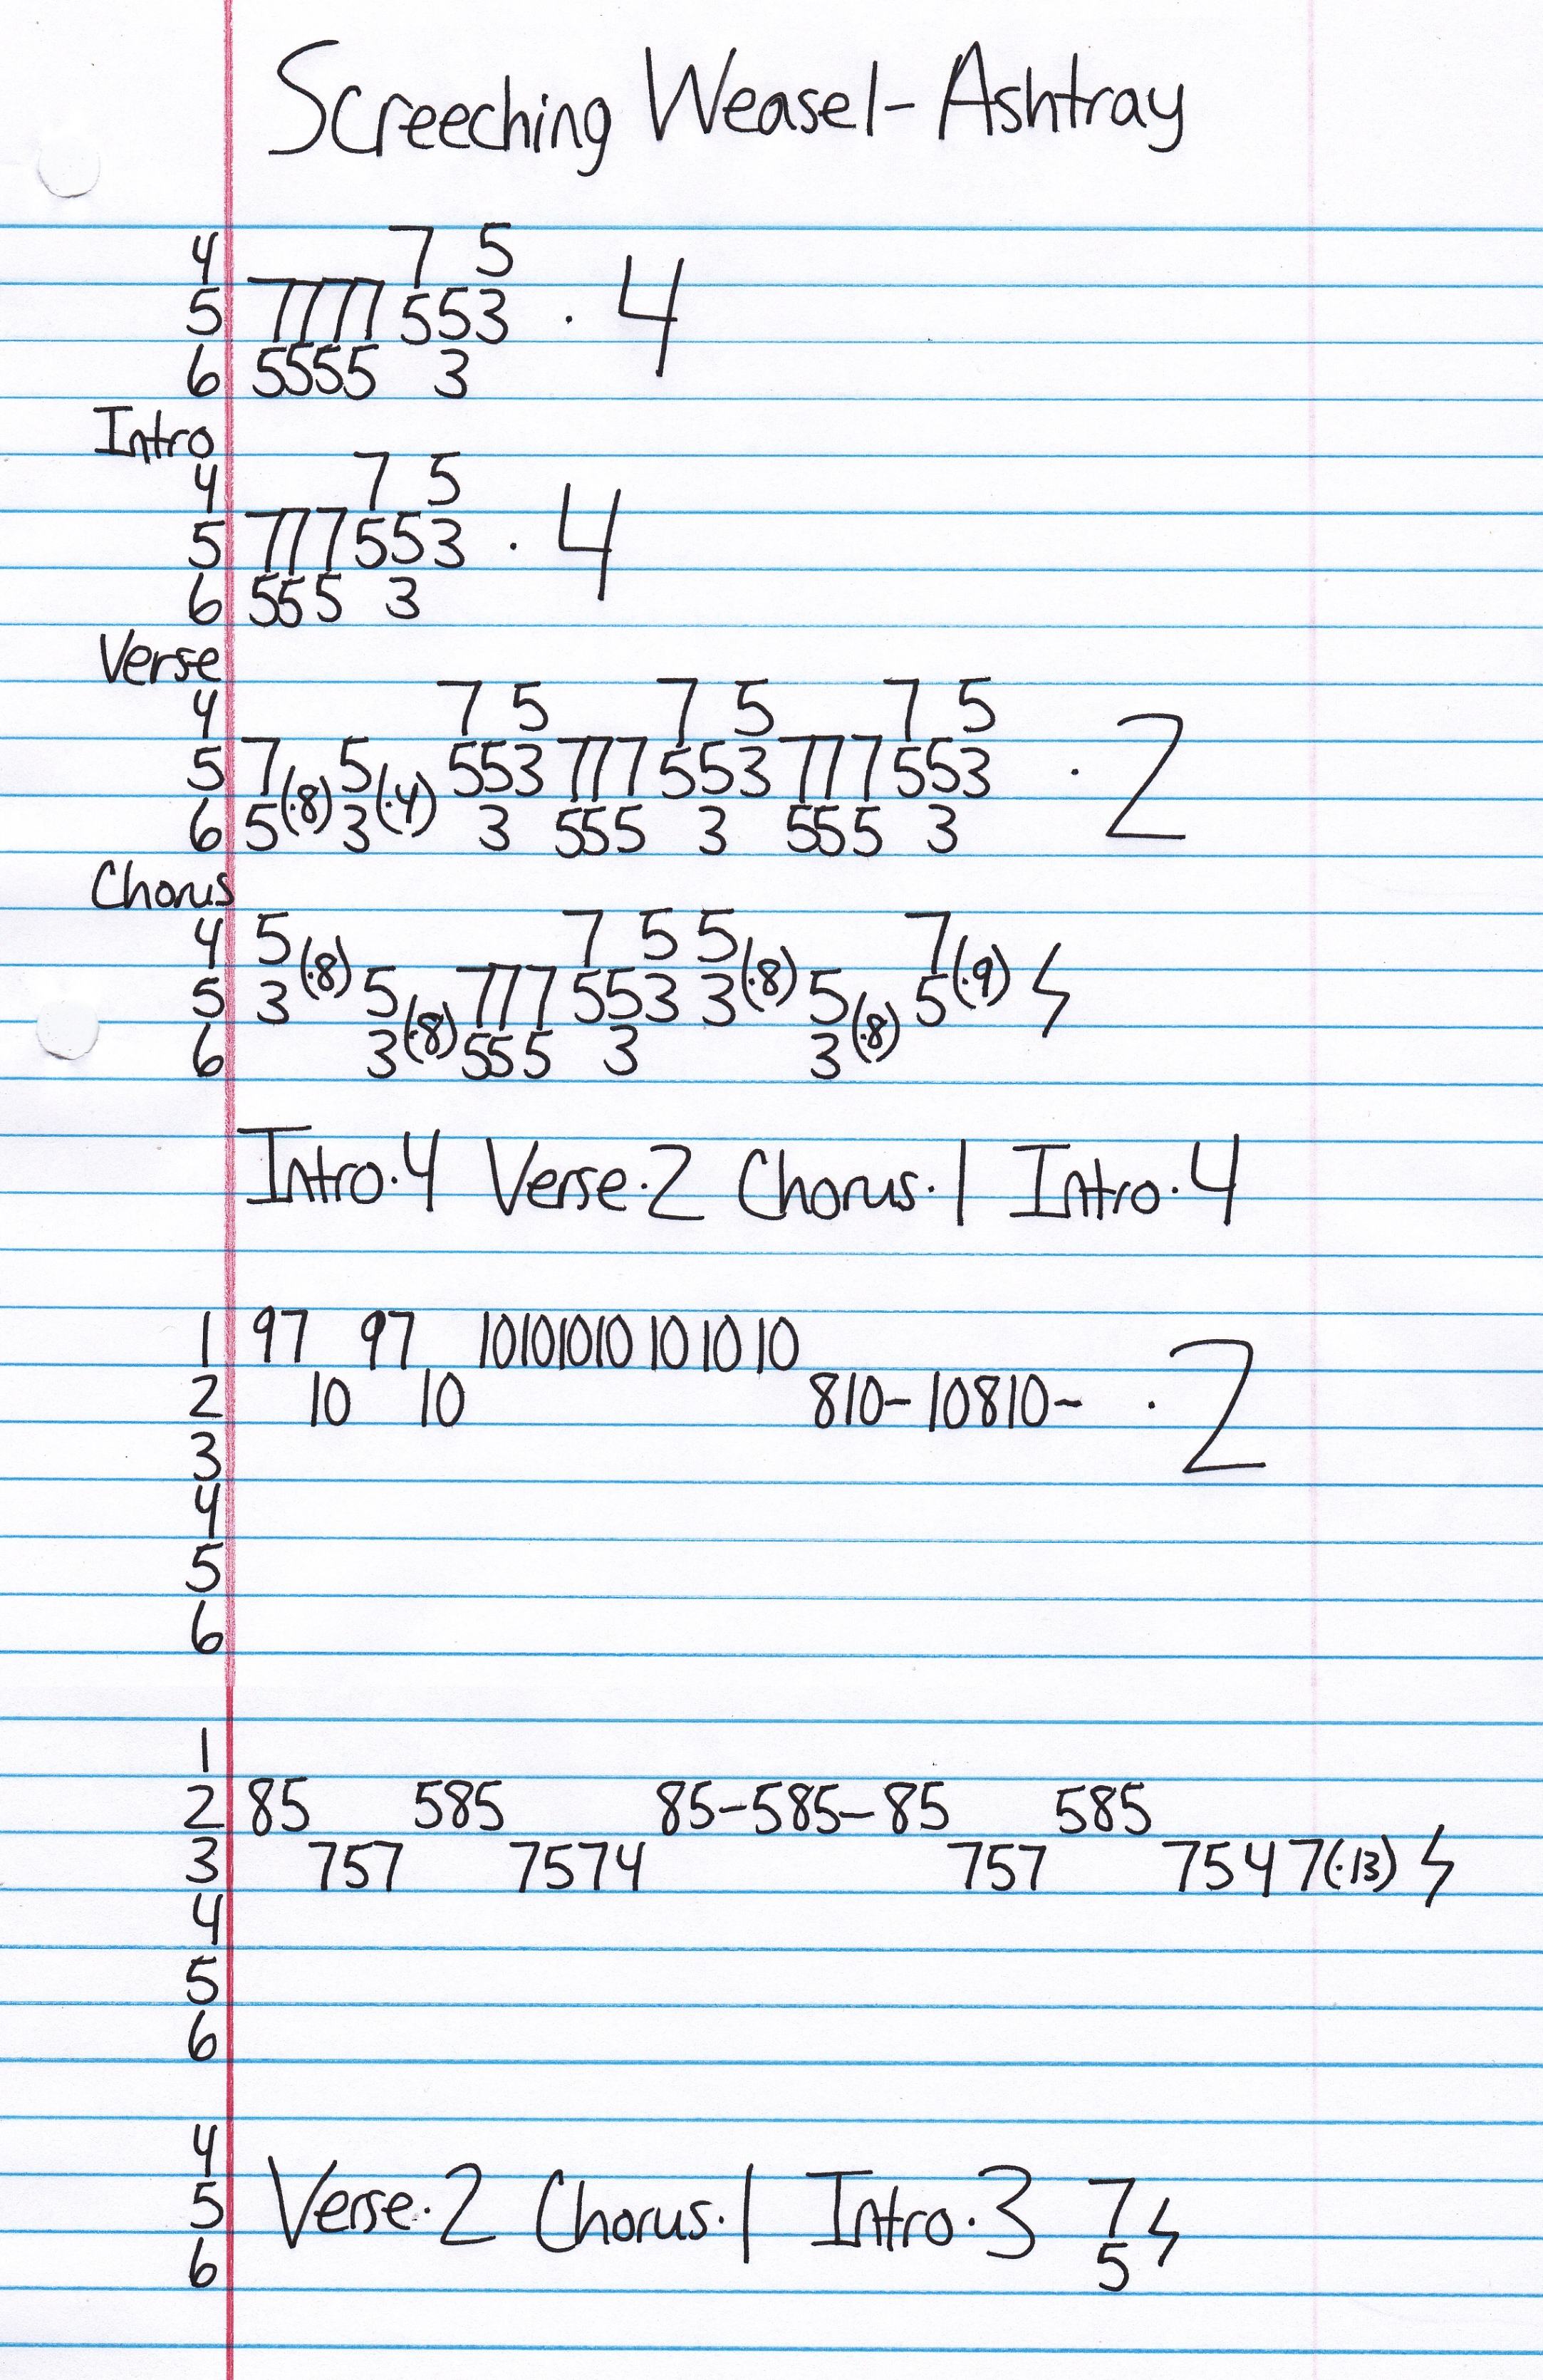 Screeching Weasel - Ashtray
4 7 5
5 7777 553 · 4
6 5555 3
Intro
4 7 5
5 777553 · 4
6 555 3
Verse
4 7 5 7 5 7 5
5 7 5 553 777553 777553 · 2
6 5(·8) 3(·4) 3 555 3 555 3
Chorus
4 5 7 5 5 7
5 3(·8) 5 777 553 3(·8) 5 5(·9) ϟ
6 3(·8) 555 3 3(·8)
Intro·4 Verse·2 Chorus·1 Intro·4
1 97 97 10101010 10 10 10
2 10 10 810- 10810- · 2
3
4
5
6
1
2 85 585 85-585-85 585
3 757 7574 757 7547(·13) ϟ
4
5
6
4
5 Verse·2 Chorus·1 Intro·3 7 ϟ
6 5